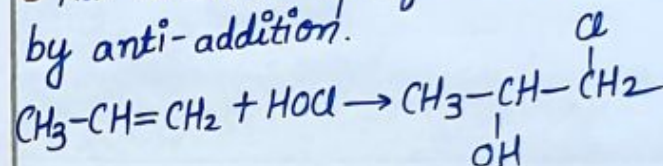 by anti-addition.
Cl
CH3-CH=CH2 + HOCl → CH3-CH-CH2
OH